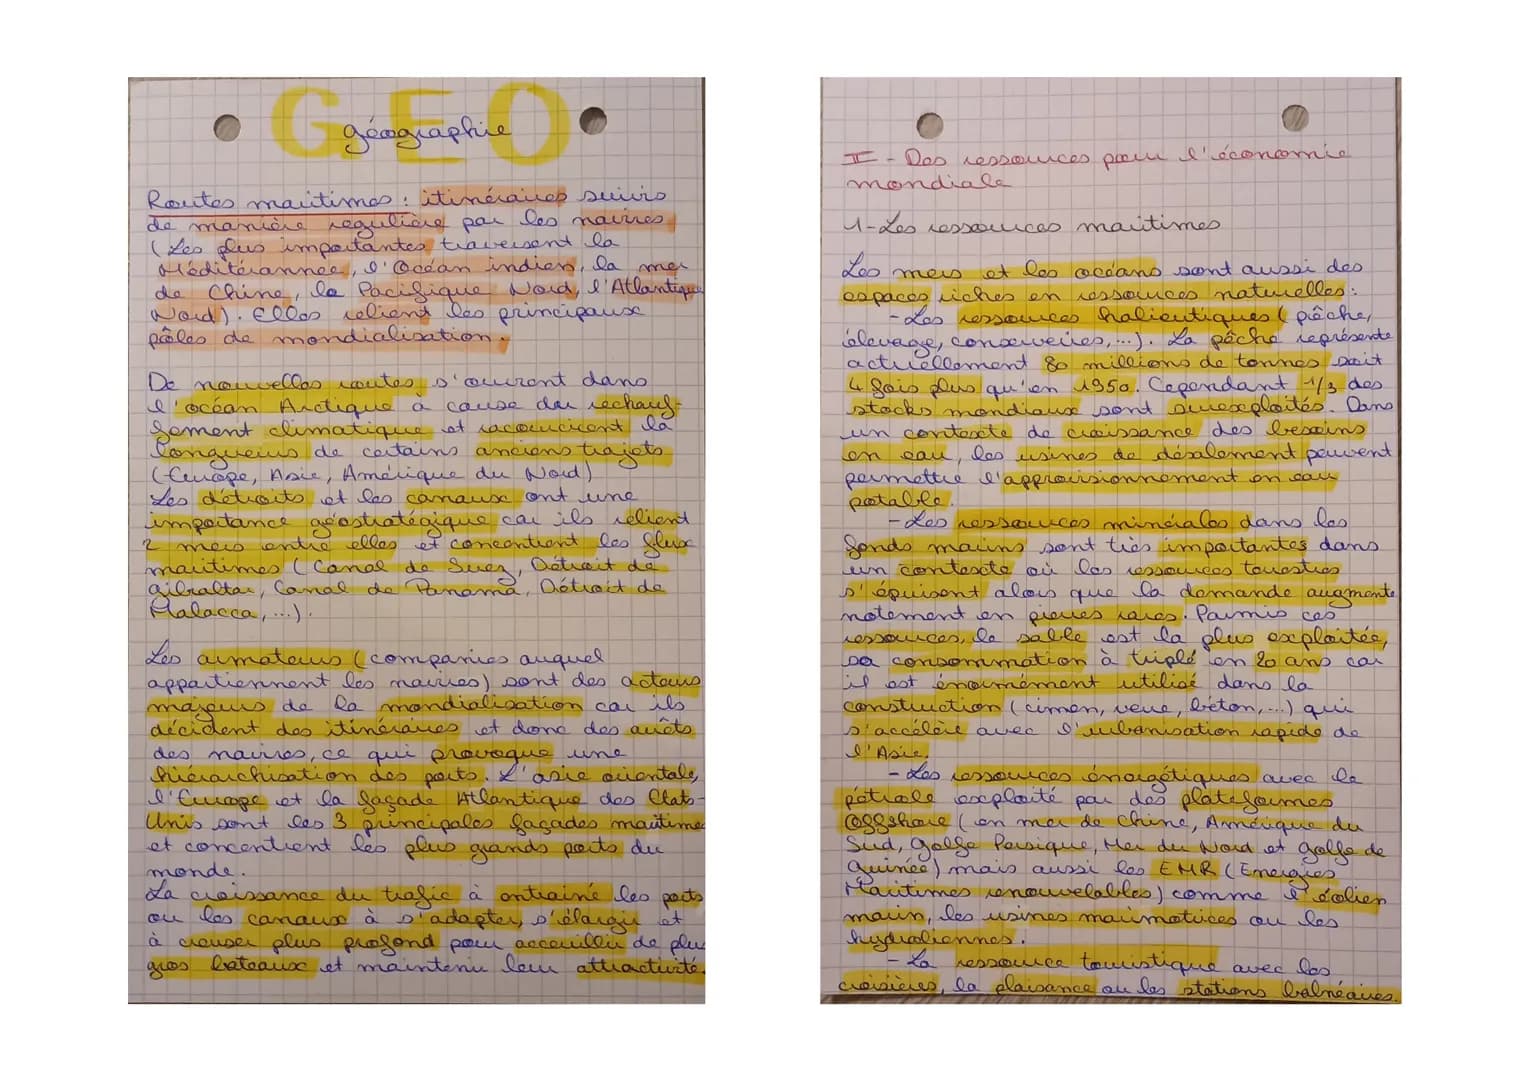 GEO
géographie
Routes maritimes : itinéraires suivis
de manière regulière par les navires
(Les plus importantes traversent la
Méditérannee, l'Océan indien, la mer
de Chine, le Pacifique Nord, l'Atlantique
Nord). Elles relient les principaux
pôles de mondialisation.
De nouvelles routes s'ouvrent dans
l'océan Arctique à cause du rechauf-
fement climatique et raccourcicent la
longueurs de certains anciens trajets
(Europe, Asie, Amérique du Nord)
Les détroits et les canaux ont une
importance géostratégique car ils relient
2 mers entre elles et concentrent les flux
maritimes (Canal de Suez, Détroit de
gibraltar, Canal de Panama, Détroit de
Malacca, ...).
Les armateurs (companies auquel
appartiennent les navires) sont des acteurs
majeurs de la mondialisation car ils
décident des itinéraires et donc des arrêts
des navires, ce qui provoque une
hiérarchisation des ports. L'asie orientale,
l'Europe et la façade Atlantique des Etats-
Unis sont les 3 principales façades maritime
et concentrent les plus grands ports du
monde.
La croissance du trafic à entrainé les ports
ou les canaux à s'adapter, s'élargir et
à creuser plus profond pour acceuillir de plus
gros bateaux et maintenir leur attractivité.
II - Des ressources pour l'économie
mondiale
1-Les ressources maritimes
Les mers et les océans sont aussi des
espaces riches en ressources naturelles :
- Les ressources halieutiques (pêche,
élevage, conserveries, ...). La pêche représente
actuellement 80 millions de tonnes soit
4 fois plus qu'en 1950. Cependant 1/3 des
stocks mondiaux sont surexploités. Dans
un contexte de croissance des besoins
en eau, les usines de désalement peuvent
permettre l'approvisionnement en eau
potable.
- Les ressources minérales dans les
fonds marins sont très importantes dans
un contexte où les ressources terrestres
s'épuisent alors que la demande augmente
notement en pierres rares. Parmis ces
ressources, le sable est la plus exploitée,
sa consommation à triplé en 20 ans car
il est énormément utilisé dans la
construction (cimen, verre, béton, ...) qui
s'accélère avec l'urbanisation rapide de
l'Asie.
- Les ressources énergétiques avec le
pétrole exploité par des plateformes
Offshore (en mer de Chine, Amérique du
Sud, golfe Persique, Mer du Nord et golfe de
guinée) mais aussi les EMR (Energies
Maritimes renouvelables) comme l'éolien
marin, les usines marémotrices ou les
hydroliennes.
- La ressource touristique avec les
croisières, la plaisance ou les stations balnéaires.